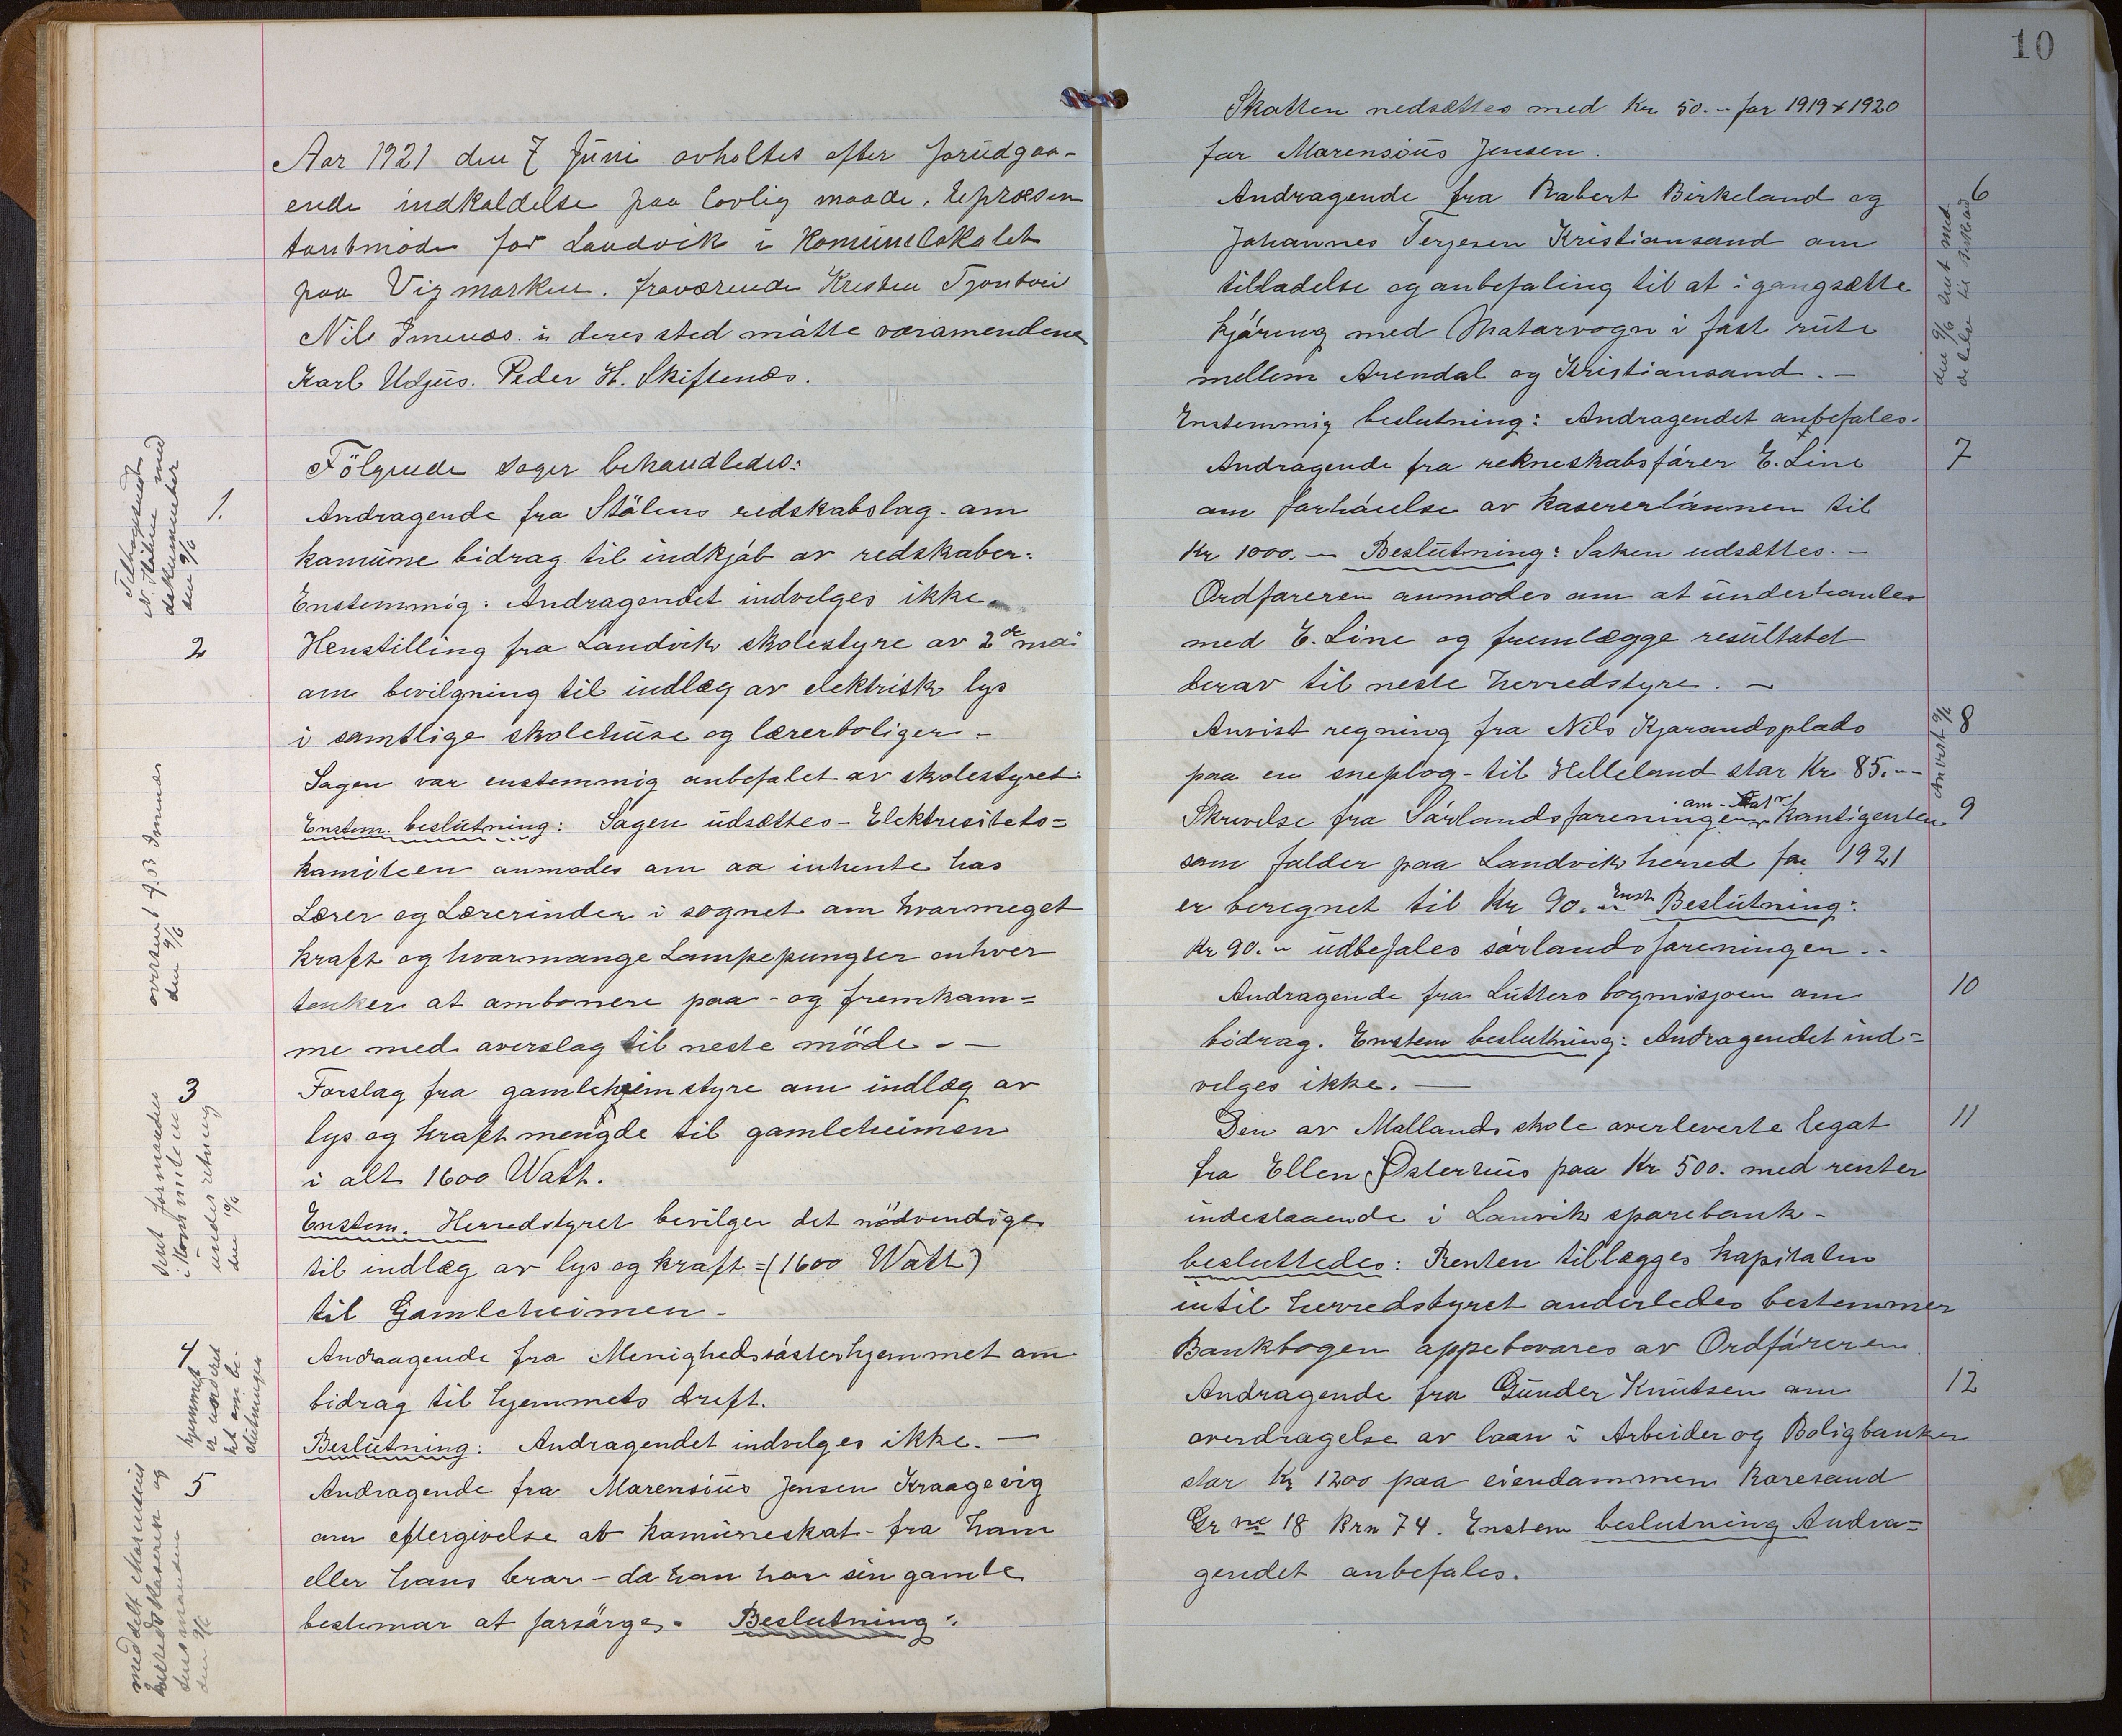 Aar 1921 den 7 Juni avholtes efter forudgaa-
ende indkaldelse paa lovlig maade. Repræsen
tantmöde for Landvik i Komunelokalet
paa Vigmarken. fraværende Kresten Tjontvei
Nils Imenæs. i deres sted mátte varamendene
Karl Udjus. Peder H. Skiftenæs.
Fölgende sager behandledes:
1.
Tilbagesendt
N. Hatun med
dokumenter
den 9/6
Andragende fra Stölens redskabslag. om
kamune bidrag til indkjáb av redskaber.
Enstemmig: Andragendet indvelges ikke.
2
oversent f. 53 Imenæs
den 9/6
Henstilling fra Landvik skolestyre av 2de mai
om bevilgning til indlæg av elektrisk lys
i samtlige skolehuse og lærerboliger.-
Sagen var enstemmig anbefalet av skolestyret
Enstem. beslutning: Sagen udsættes - Elektresitets=
kamiteen anmodes om aa inhente hos
Lærer og Lærerinder i sognet om hvormeget
kraft og hvormange Lampepungter enhver
tenker at ambonere paa - og fremkam=
me med averslag til neste möde. -
3
Sent formanden
i Kommiteen
underretning
den 10/6
Forslag fra gamleheimstyre om indlæg av
lys og kraft mengde til gamleheimen
i alt 1600 Watt.
Enstem. Herredstyret bevilger det nödvendige
til indlæg av lys og kraft = (1600 Watt)
til Gamleheimen.
4
hjemmet
er underret
tet om be-
slutningen
Andraagende fra Menighedssásterhjemmet om
bidrag til hjemmets dreft.
Beslutning: Andragendet indvelges ikke. -
5
meddelt Marensius
herredskaserer og
lensmanden
den 9/6
Andragende fra Marensius Jensen Kraagevig
om eftergivelse at kamuneskat - fra ham
eller hans bror - da han har sin gamle
bestemor at forsörge. Beslutning:
10
Skatten nedsættes med Kr 50.- for 1919 + 1920
for Marensius Jensen.
6
den 9/6 sent med
delelse til Birkeland
Andragende fra Robert Birkeland og
Johannes Terjesen Kristiansand om
tilladelse og anbefaling til at igangsætte
kjáring med Matarvogn i fast rute
mellem Arendal og Kristiansand. -
Enstemmig beslutning: Andragendet anbefales.
7
Andragende fra rekneskabsfárer E. Line
om forháielse av kasererlánnen til
Kr 1000. - Beslutning: Saken udsættes. -
Ordfareren anmodes om at underhanles
med E. Line og fremlægge resultatet
derav til neste herredstyre. -
8
Anvist 9/6
Anvist regning fra Nils Kjorandsplads
paa en sneplog - til Helleland stor Kr 85.--
9
Skrivelse fra Sárlandsforeningen om kontigenten
som falder paa Landvik herred for 1921
er beregnet til Kr 90.- Enst Beslutning:
Kr 90.- udbefales sárlandsforeningen.-
10
Andragende fra Lutters bogmisjoen om
bidrag. Enstem beslutning: Andragendet ind=
velges ikke. -
11
Den av Mollands skole overleverte legat
fra Ellen Osterhus paa Kr 500. med renter
indestaaende i Lanvik sparebank -
besluttedes: Renten tillægges kapitalen
intil herredstyret anderledes bestemmer
Bankbogen appebevares av Ordfáreren.
12
Andragende fra Gunder Knutsen om
overdragelse av laan i Arbeider og Boligbanken
stor Kr 1200 paa eiendammen Roresand
Gr no 18 Brn 74. Enstem beslutning Andra=
gendet anbefales.